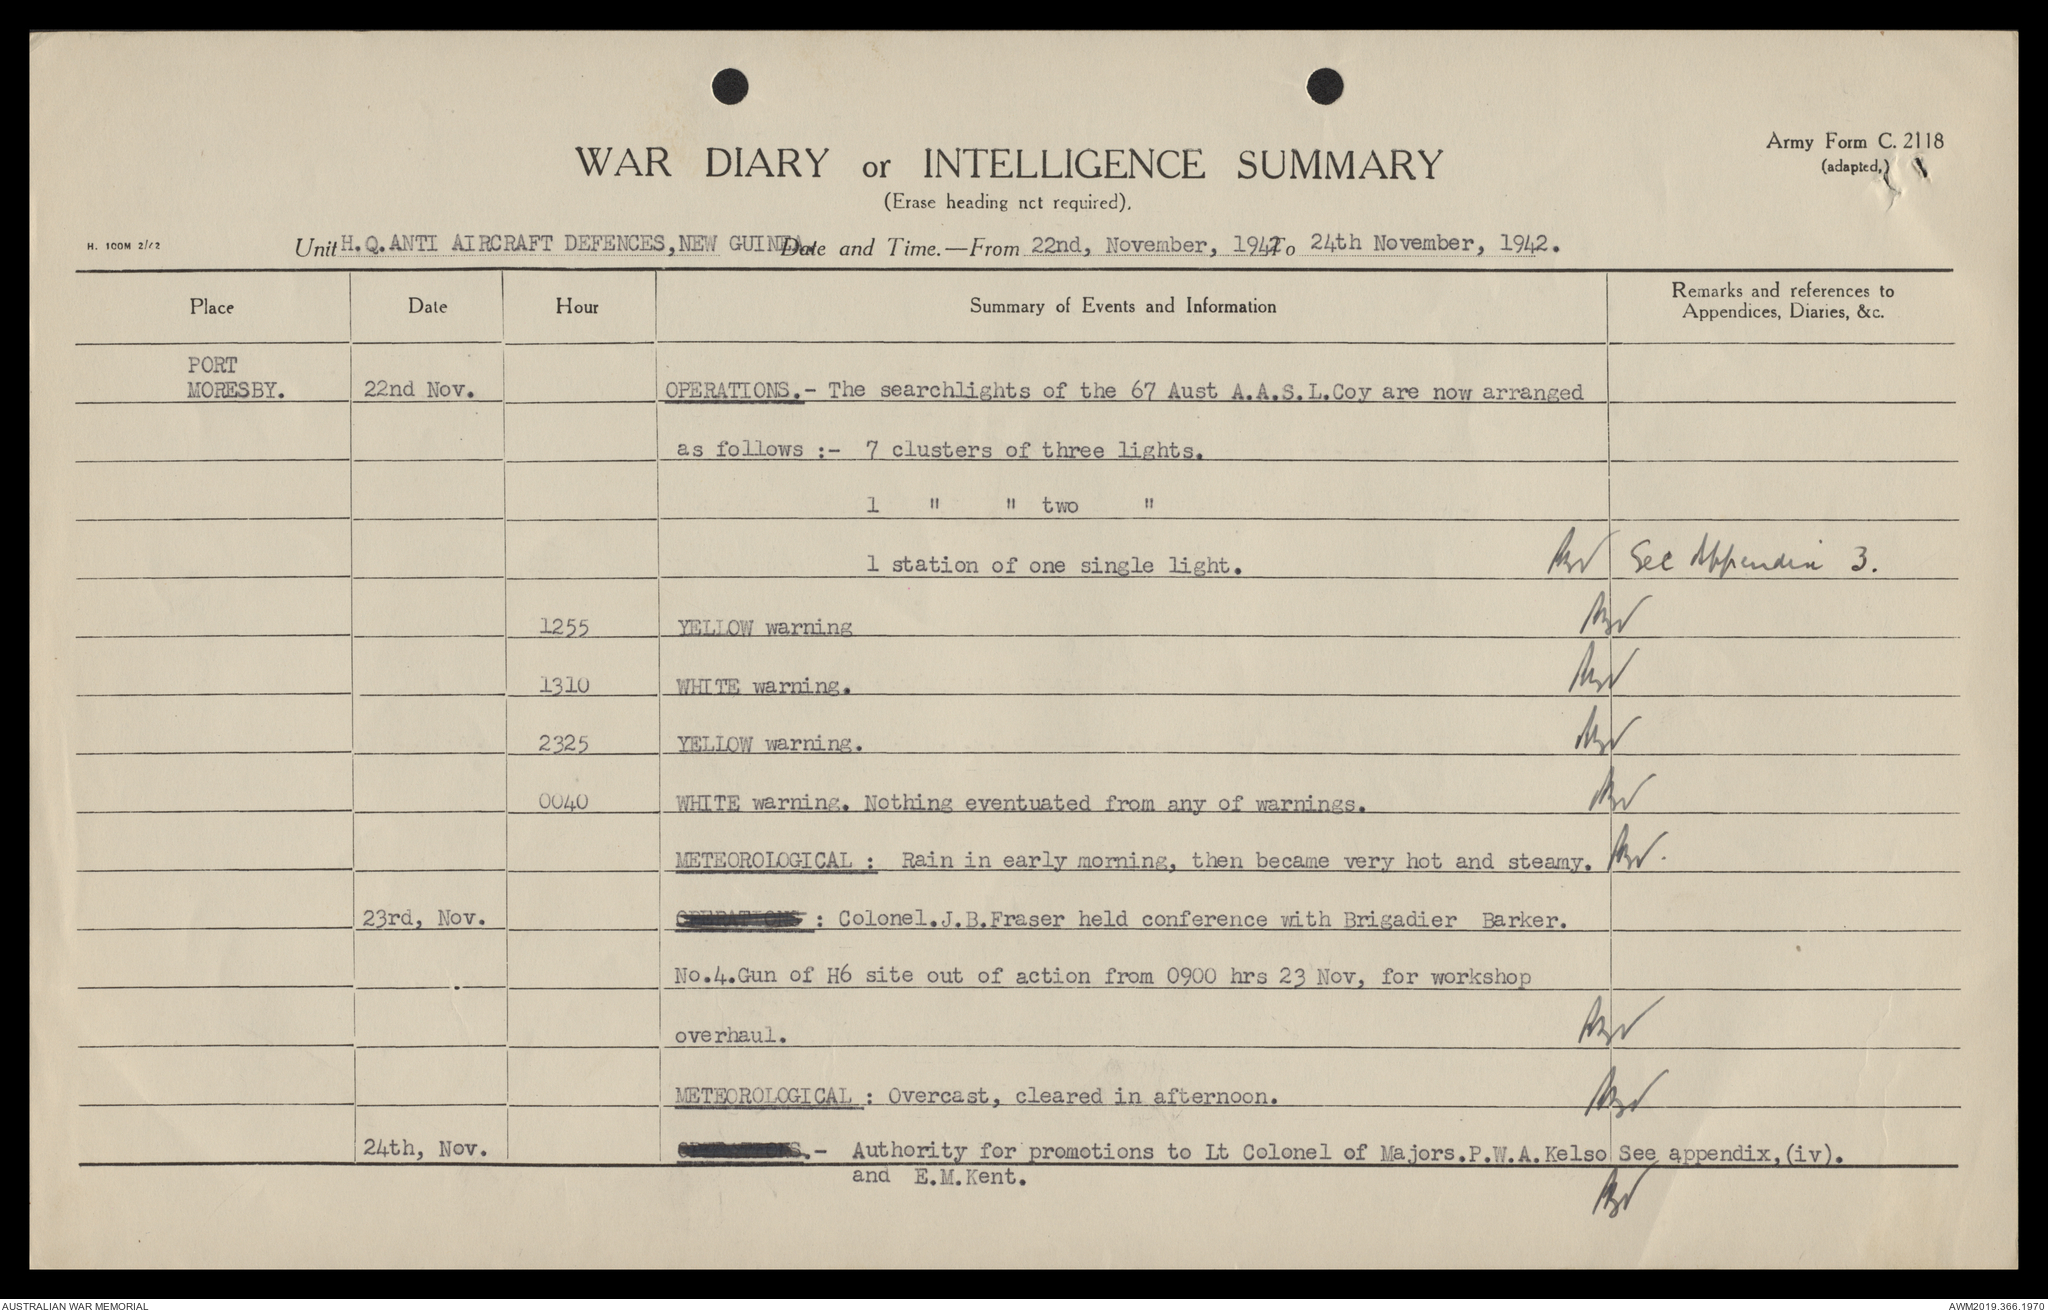 Army Form C. 2118
(adapted.)
WAR DIARY or INTELLIGENCE SUMMARY
(Erase heading nct required).
H. 100M 2/42
Unit H.Q.ANTI AIRCRAFT DEFENCES,NEW GUINEA. Date and Time.—From 22nd, November, 1942 To 24th November, 1942.
Place Date Hour Summary of Events and Information Remarks and references to
Appendices, Diaries, &c.
PORT
MORESBY. 22nd Nov. OPERATIONS.- The searchlights of the 67 Aust A.A.S.L.Coy are now arranged
as follows :- 7 clusters of three lights.
1 " " two "
1 station of one single light. See Appendix 3.
1255 YELLOW warning
1310 WHITE warning.
2325 YELLOW warning.
0040 WHITE warning. Nothing eventuated from any of warnings.
METEOROLOGICAL : Rain in early morning, then became very hot and steamy.
23rd, Nov. OPERATIONS : Colonel.J.B.Fraser held conference with Brigadier Barker.
No.4.Gun of H6 site out of action from 0900 hrs 23 Nov, for workshop
overhaul.
METEOROLOGICAL : Overcast, cleared in afternoon.
24th, Nov. OPERATIONS.- Authority for promotions to Lt Colonel of Majors.P.W.A.Kelso See appendix,(iv).
and E.M.Kent.
AUSTRALIAN WAR MEMORIAL AWM2019.366.1970